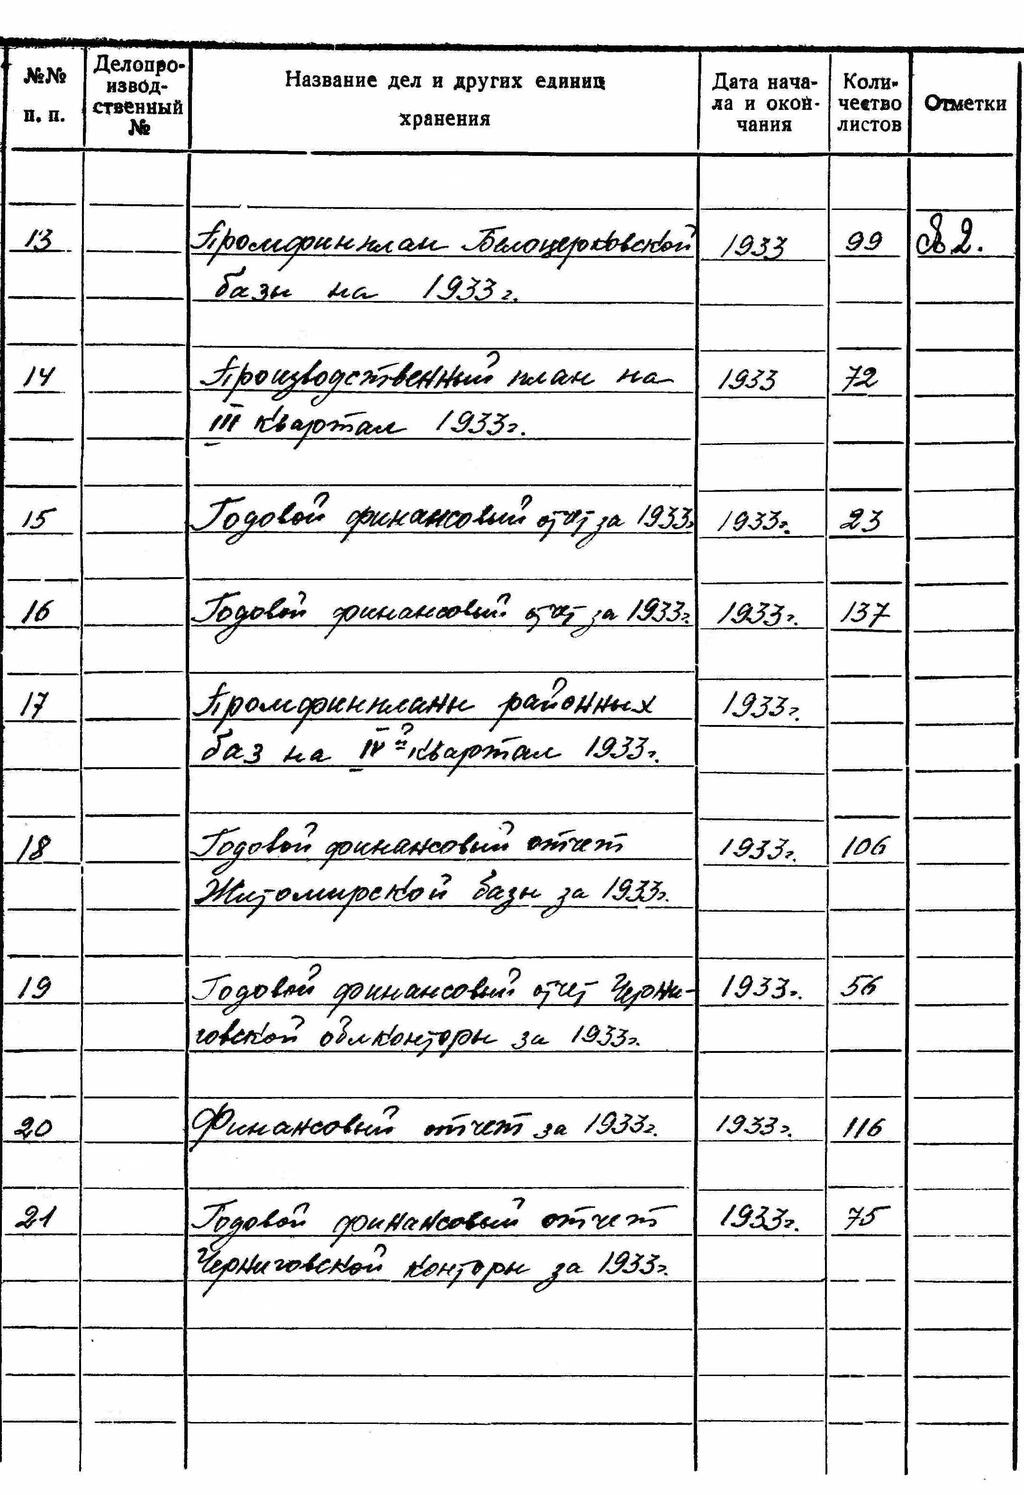 №№ п. п. Делопро-извод-ственный № Название дел и других единиц хранения Дата нача-ла и окон-чания Коли-чество листов Отметки
13 Промфинплан Белоцерковской 1933 99
базы на 1933г.
14 Производственный план на 1933 72
III квартал 1933г.
15 Годовой финансовый отчет за 1933г. 1933г. 23
16 Годовой финансовый отчет за 1933г. 1933г. 137
17 Промфинпланы районных 1933г.
баз на IV й квартал 1933г.
18 Годовой финансовый отчет 1933г. 106
Житомирской базы за 1933г.
19 Годовой финансовый отчет Черни- 1933г. 56
говской облконторы за 1933г.
20 Финансовый отчет за 1933г. 1933г. 116
21 Годовой финансовый отчет 1933г. 75
Черниговской конторы за 1933г.